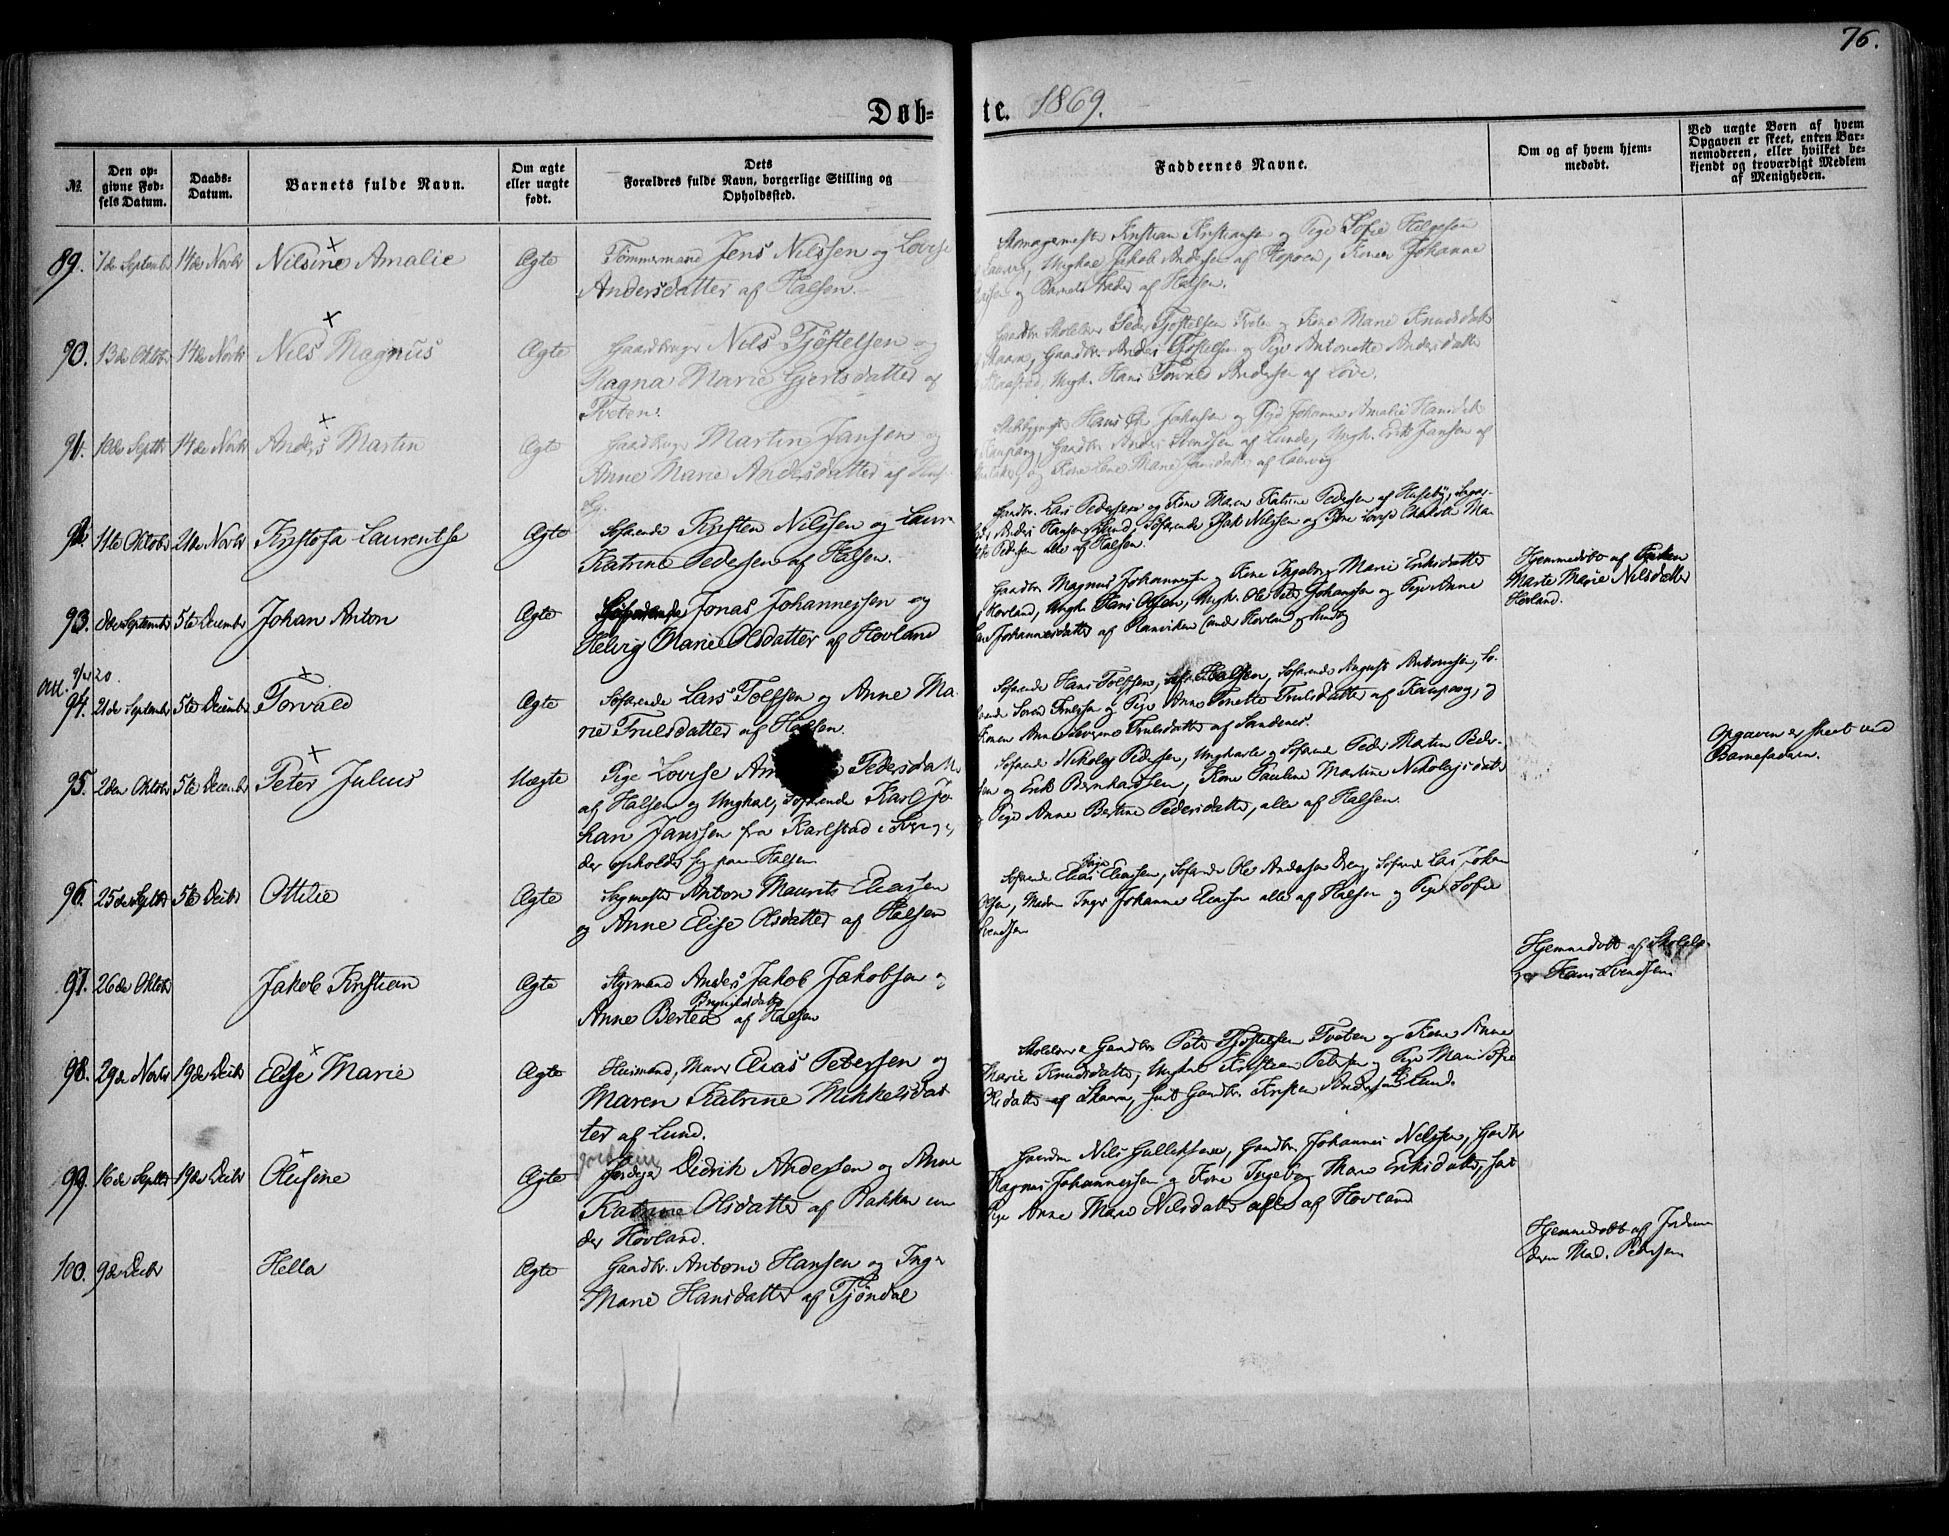 76.
Døb= te. 1869.
№.
Den op-
givne Fød-
sels Datum.
Daabs-
Datum.
Barnets fulde Navn.
Om ægte
eller uægte
født.
Dets
Forældres fulde Navn, borgerlige Stilling og
Opholdssted.
Faddernes Navne.
Om og af hvem hjem-
medøbt.
Ved uægte Børn af hvem
Opgaven er skeet, enten Bar-
nemoderen, eller hvilket be-
kjendt og troværdigt Medlem
af Menigheden.
89. 7de Septembr 14de Novbr Nilsine Amalie Ægte Tømmermand Jens Nilssen og Lovise
Andersdatter af Halsen.
Kristian Kristiansen og Pige Sofie Helgesen
Ungkae Jakob Andersen af Konen Johanne
og Barnets Fader af Halsen.
90. 13de Oktbr 14de Novbr Nils Magnus Ægte Gaardbruger Nils Tjøstelsen og
Ragna Marie Gjertsdatter af
Tveten.
Gaardbr. Skolelærer Peder Tjøstelsen Tveten og Kone Marie Knudsdatter
Skaarn, Gaardbr. Anders Tjøstelsen og Pige Antonette Andersdatter
Ungk. Hans Torvald Andersen af Love.
91. 14de Novbr Anders Martin Ægte Gaardbruger Martin Jansen og
Anne Marie Andersdatter af
Hans Jakobsen og Pige Johanne Amalie Hansdatter
Kaupang, Gaardbr. Anders Svendsen af Lunde, Ungk. Erik Jansen af
og Kone Lene Marie Jansdatter af Laurvig
92. 11te Oktobr 21de Novbr Kristofa Laurentse Ægte Søfarende Kristen Nilssen og Laura
Katrine Pedersen af Halsen.
Gaardbr. Lars Pedersen og Kone Maren Katrine Pedersen af Huseby,
Anders Hansen Lund, Søfarende Isak Nilssen og Pige Lovise Charlotte Ma-
Pedersen alle af Halsen.
93. 8de September 5te December Johan Anton Ægte Jonas Johannessen og
Helvig Marie Olsdatter af Hovland
Gaardbr. Magnus Johannessen og Kone Ingeborg Marie Eriksdatter
Hovland, Ungk. Hans Olsen, Ungk. Ole Peter Johansen og Pige Anne
Johannesdatter af Ranviken under Hovland
Hjemmedøbt af Pigen
Marte Marie Nilsdatter
Hovland.
Att. 9/4 20.
94. 21de September 5te December Torvald Ægte Søfarende Lars Tolfsen og Anne Ma-
rie Trulsdatter af Halsen.
Søfarende Hans Tolfsen, Halsen, Søfarende August Antonsen, Sø-
farende Søren Trulsen og Pige Anne Tonette Trulsdatter af Kaupang, og
Konen Anne Severine Trulsdatter af Sandenes.
95. 2den Oktobr 5te December Peter Julius Uægte Pige Lovise Pedersdatter
af Halsen og Ungkal, Søfarende Karl Jo-
han Janssen fra Karlstad i Sverige,
der opholder sig paa Halsen
Søfarende Nikolay Pedersen, Ungkarle og Søfarende Peder Martin Peder-
sen og Erik Bernhardsen, Kone Pauline Martine Nikolajsdatter
og Pige Anne Bertine Pedersdatter, alle af Halsen.
Opgaven er skeet ved
Barnefaderen.
96. 25de Septbr 5te Decbr Ottilie Ægte Anton Maurits Eliassen
og Anne Elise Olsdatter af Halsen
Søfarende Elias Eliassen, Søfarende Ole Andersen Søfarende Lars Johan
Olsen, Madm Inger Johanne Eliassen alle af Halsen og Pige Sofie
Svendsen
97. 26de Oktobr Jakob Kristian Ægte Styrmand Anders Jakob Jakobsen og
Anne Bertea Brynildsdatter af Halsen
Hjemmedøbt af Skolelæ-
rer Hans Svendsen
98. 29de Novbr 19de Decbr Elise Marie Ægte Huusmand, Murer Elias Petersen og
Maren Katrine Mikkelsdat-
ter af Lund.
Skolelærer Gaardbr. Peter Tjøstelsen Tveten og Kone Anne
Marie Knudsdatter, Ungkal Kristian Petersen og Pige Marie Sofie
Olsdatter af Skaarn, samt Gaardbr. Kristen Andersen Lund.
99. 16de Septbr 19de Decbr Olufine Ægte Didrik Andersen og Anne
Katrine Olsdatter af Bakken un-
der Hovland.
Gaardm Nils Gulliksen, Gaardbr. Johannes Nilssen, Gaardbr
Magnus Johannessen og Kone Ingeborg Marie Eriksdatter, samt
Pige Anne Marie Nilsdatter alle af Hovland
100. 9de Decbr Hella Ægte Gaardbr. Antoni Hansen og Inger
Marie Hansdatter af Tjøndal
Hjemmedøbt af Jordemo-
deren Mad. Pedersen